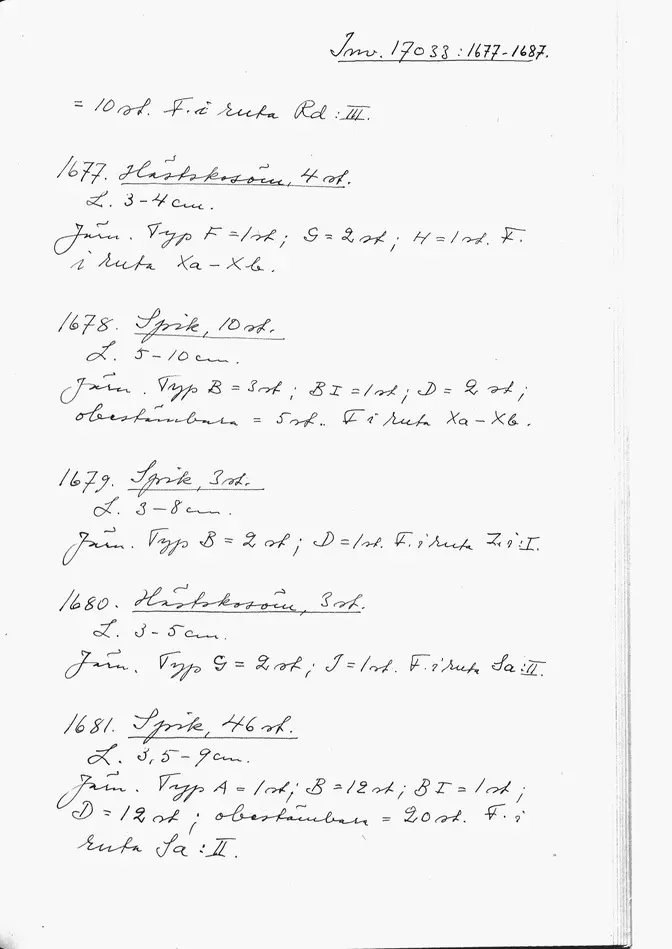 Inv. 17033:1677-1687.
= 10 st. F. i ruta Rd:III.
1677. Hästskosöm, 4 st.
L. 3-4 cm.
Järn. Typ F = 1 st; G = 2 st; H = 1 st. F.
i ruta Xa-Xb.
1678. Spik, 10 st.
L. 5-10 cm.
Järn. Typ B = 3 st; BI = 1 st; D = 2 st;
obestämbara = 5 st.. F i ruta Xa-Xb.
1679. Spik, 3 st.
L. 3-8 cm.
Järn. Typ B = 2 st; D = 1 st. F. i ruta Zi:I.
1680. Hästskosöm, 3 st.
L. 3-5 cm.
Järn. Typ G = 2 st; I = 1 st. F. i ruta Sa:II.
1681. Spik, 46 st.
L. 3,5-9 cm.
Järn. Typ A = 1 st; B = 12 st; BI = 1 st;
D = 12 st; obestämbara = 20 st. F. i
ruta Sa:II.